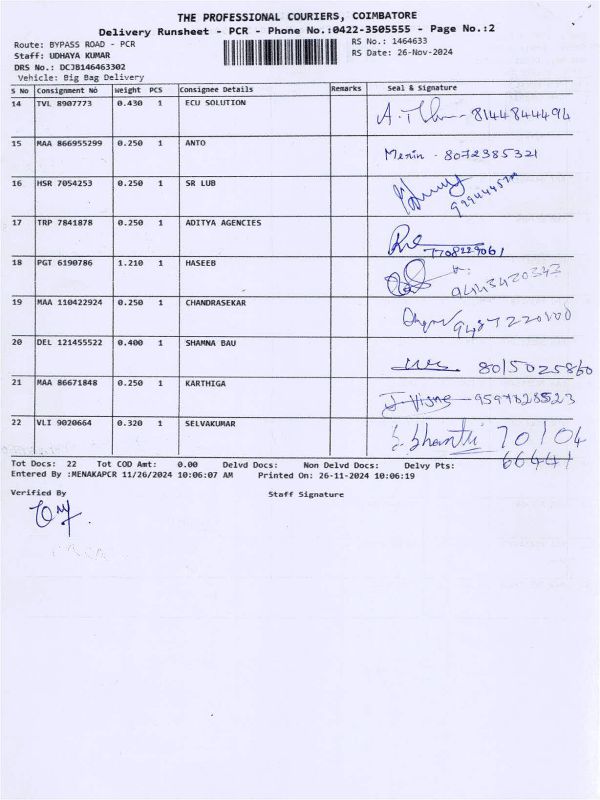 THE PROFESSIONAL COURIERS, COIMBATORE
Delivery Runsheet - PCR - Phone No.:0422-3505555 - Page No.:2
Route: BYPASS ROAD - PCR RS No.: 1464633
Staff: UDHAYA KUMAR RS Date: 26-Nov-2024
DRS No.: DCJB146463302
Vehicle: Big Bag Delivery
S No Consignment No Weight PCS Consignee Details Remarks Seal & Signature
14 TVL 8907773 0.430 1 ECU SOLUTION 8144844494
15 MAA 866955299 0.250 1 ANTO Menin - 8072385321
16 HSR 7054253 0.250 1 SR LUB
17 TRP 7841878 0.250 1 ADITYA AGENCIES 7708229061
18 PGT 6190786 1.210 1 HASEEB 9443420343
19 MAA 110422924 0.250 1 CHANDRASEKAR 9487220100
20 DEL 121455522 0.400 1 SHAMNA BAU 8015025860
21 MAA 86671848 0.250 1 KARTHIGA 9597828523
22 VLI 9020664 0.320 1 SELVAKUMAR S. Shanthi 70104
66441
Tot Docs: 22 Tot COD Amt: 0.00 Delvd Docs: Non Delvd Docs: Delvy Pts:
Entered By :MENAKAPCR 11/26/2024 10:06:07 AM Printed On: 26-11-2024 10:06:19
Verified By Staff Signature